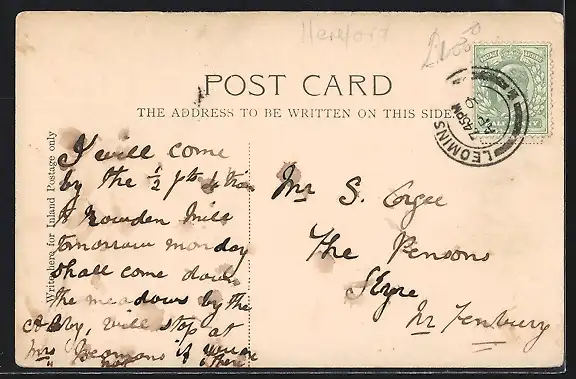 Hereford
POST CARD
THE ADDRESS TO BE WRITTEN ON THIS SIDE
LEOMINS
7.45PM
AP 9
Write here for Inland Postage only
I will come
by the ½ pt 4 train
at Rowden Mill
tomorrow monday
shall come down
the meadows by the
, will stop at
Mrs if
not there
Mr S.
The Pensons
Kyre
Nr Tenbury